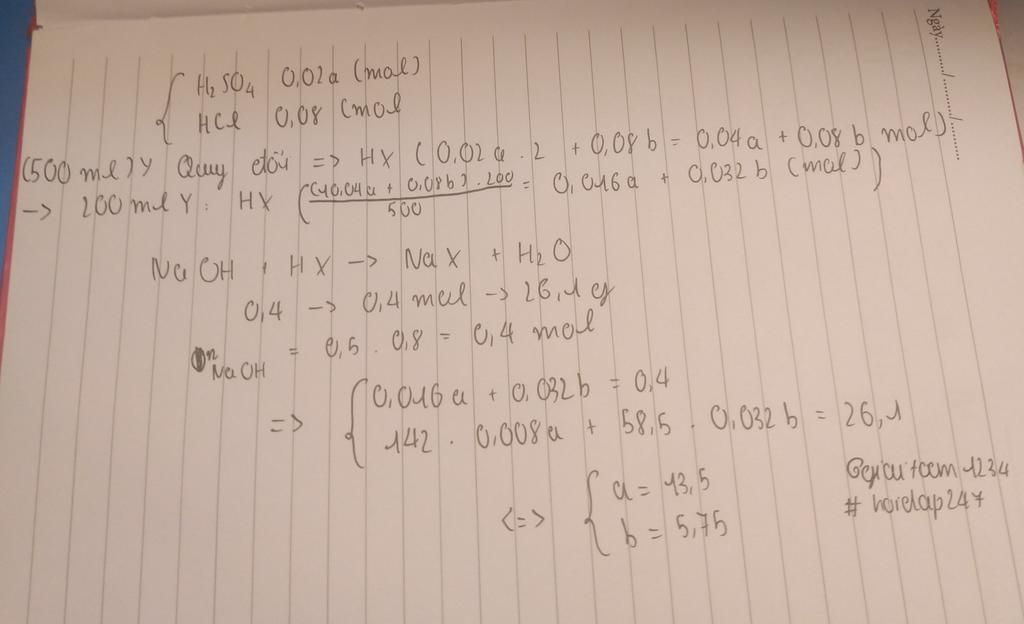 Ngày........./........../..........
H₂SO₄ 0,02a (mol)
HCl 0,08 (mol
(500 ml) Y Quy đổi => HX (0,02a . 2 + 0,08b = 0,04a + 0,08b mol)
-> 200 ml Y: HX ((0,04a + 0,08b) . 200 / 500 = 0,016a + 0,032b (mol))
NaOH + HX -> NaX + H₂O
0,4 -> 0,4 mol -> 26,1 g
nNaOH = 0,5 . 0,8 = 0,4 mol
=> { 0,016a + 0,032b = 0,4
142 . 0,008a + 58,5 . 0,032b = 26,1
<=> { a = 13,5
b = 5,75
# hoidap247